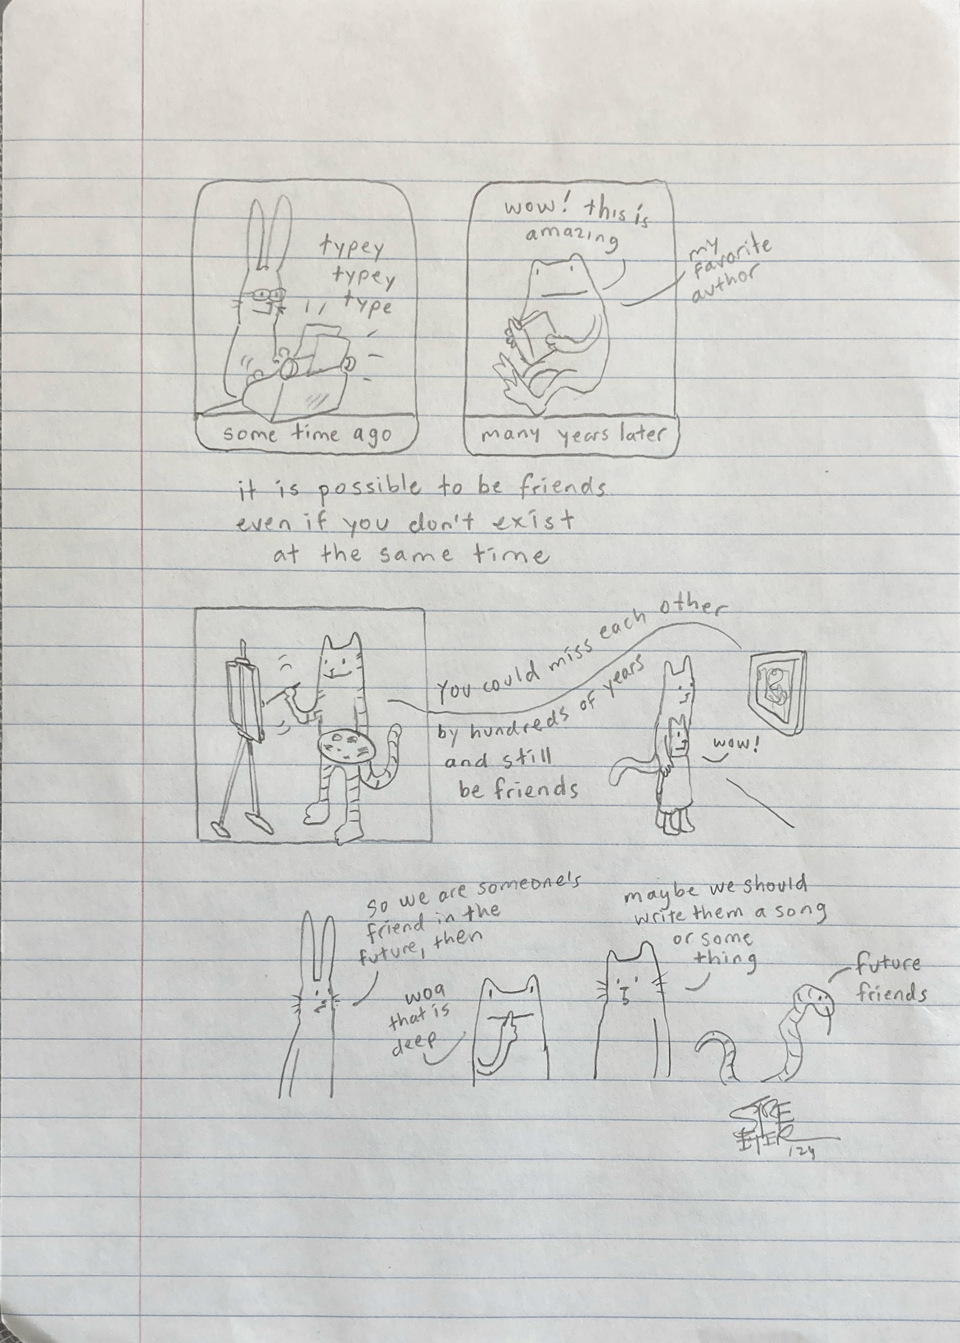 typey
typey
type
some time ago
wow! this is
amazing
my
favorite
author
many years later
it is possible to be friends
even if you don't exist
at the same time
You could miss each other
by hundreds of years
and still
be friends
wow!
so we are someone's
friend in the
future, then
woa
that is
deep
maybe we should
write them a song
or some
thing
future
friends
STRE
ETER
124